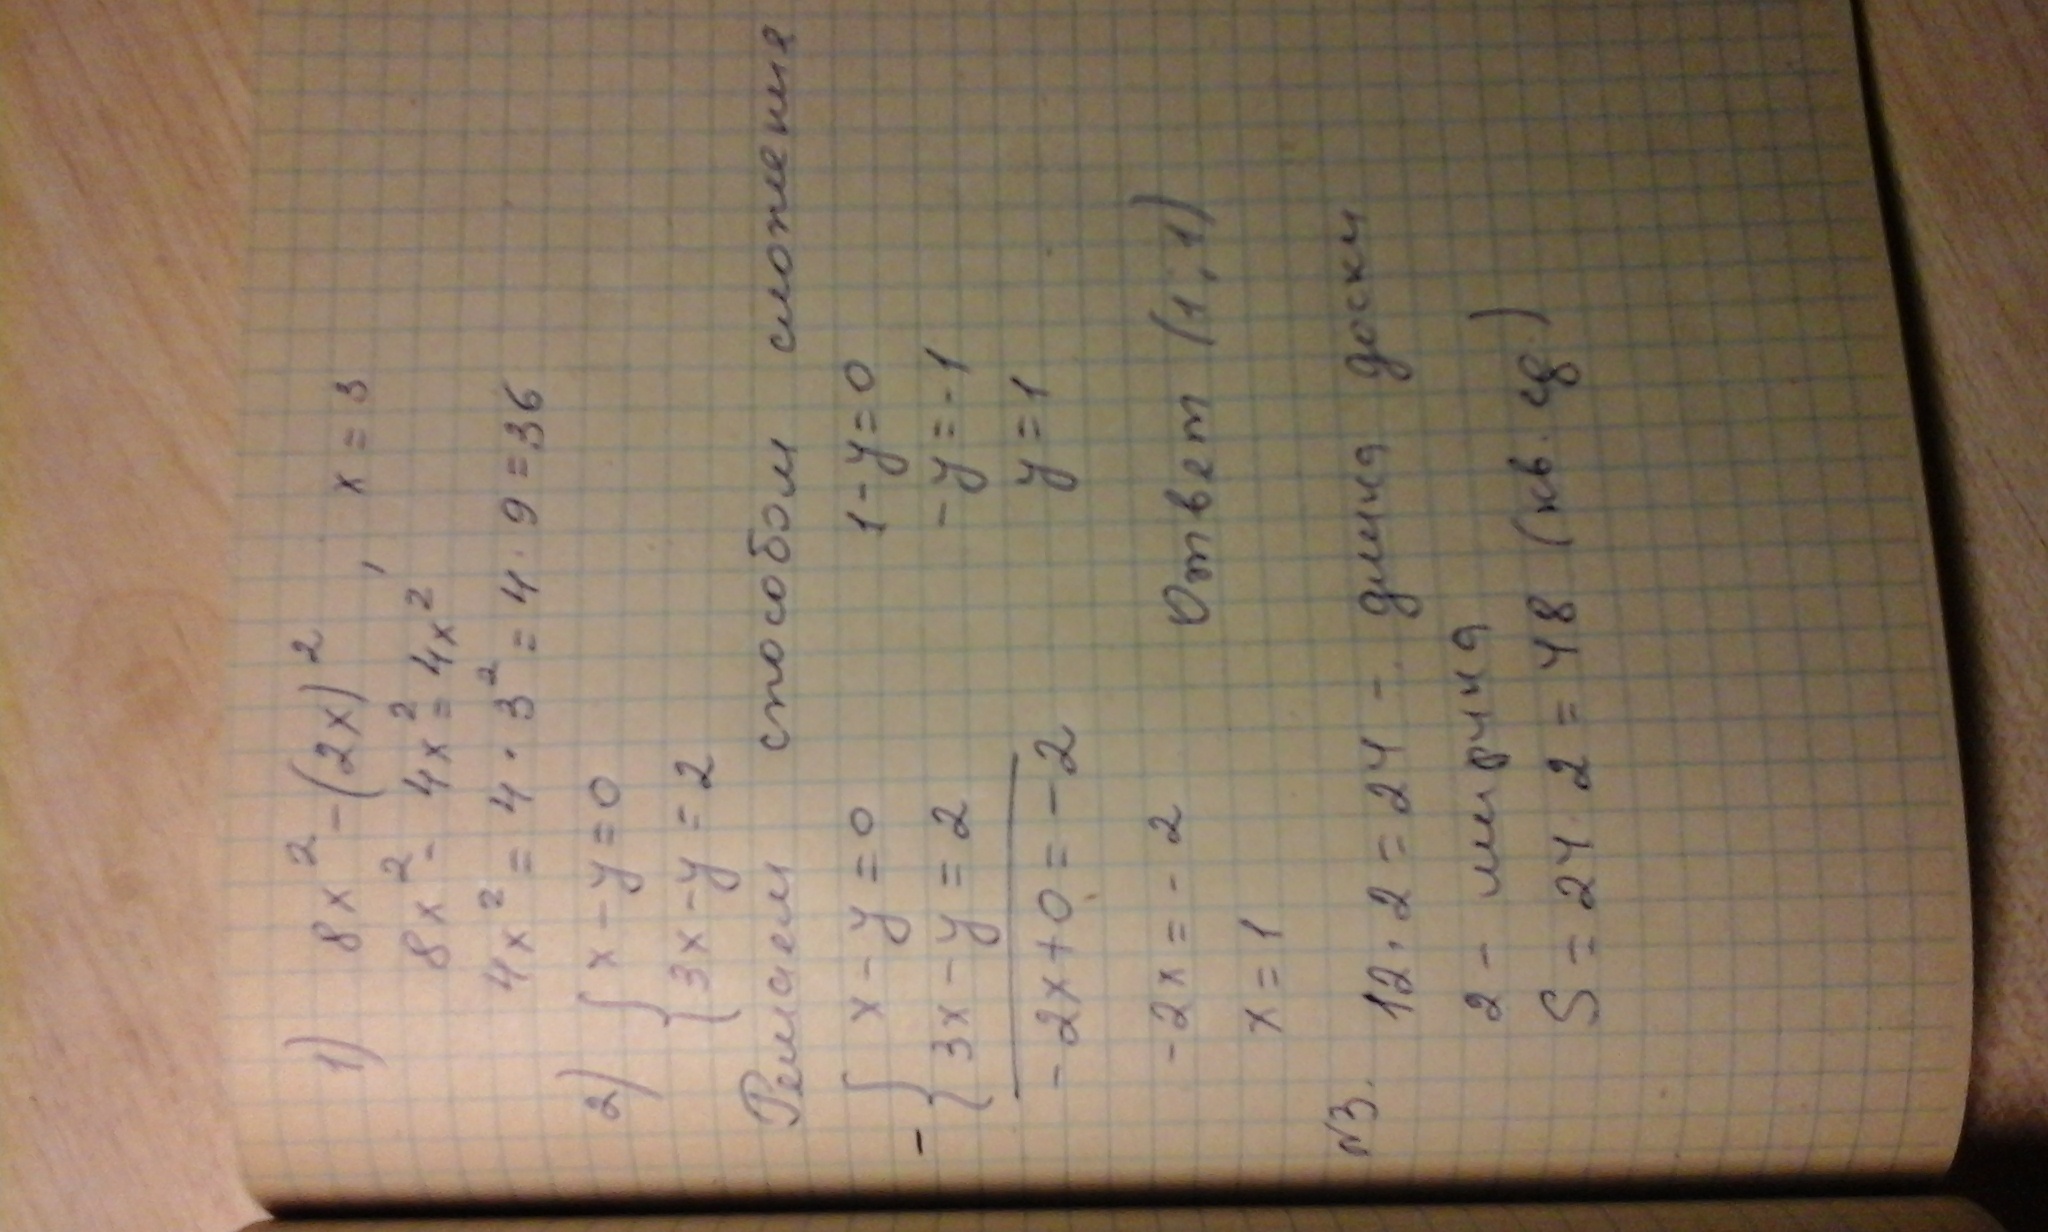 1) 8x² - (2x)², x = 3
8x² - 4x² = 4x²
4x² = 4 · 3² = 4 · 9 = 36
2) { x - y = 0
3x - y = 2
Решаем способом сложения
- { x - y = 0 1 - y = 0
3x - y = 2 - y = -1
-2x + 0 = -2 y = 1
-2x = -2 Ответ (1; 1)
x = 1
№3. 12 · 2 = 24 - длина доски
2 - ширина
S = 24 · 2 = 48 (кв. ф.)